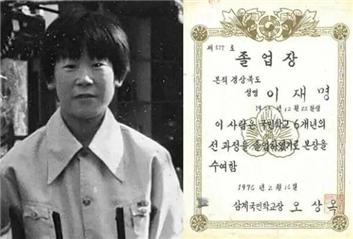 제 577 호
졸업장
본적 경상북도
성명 이재명
12월 22일생
이 사람은 국민학교 6개년의
전 과정을 졸업하였기로 본장을
수여함
1976년 2월
삼계국민학교장 오상옥